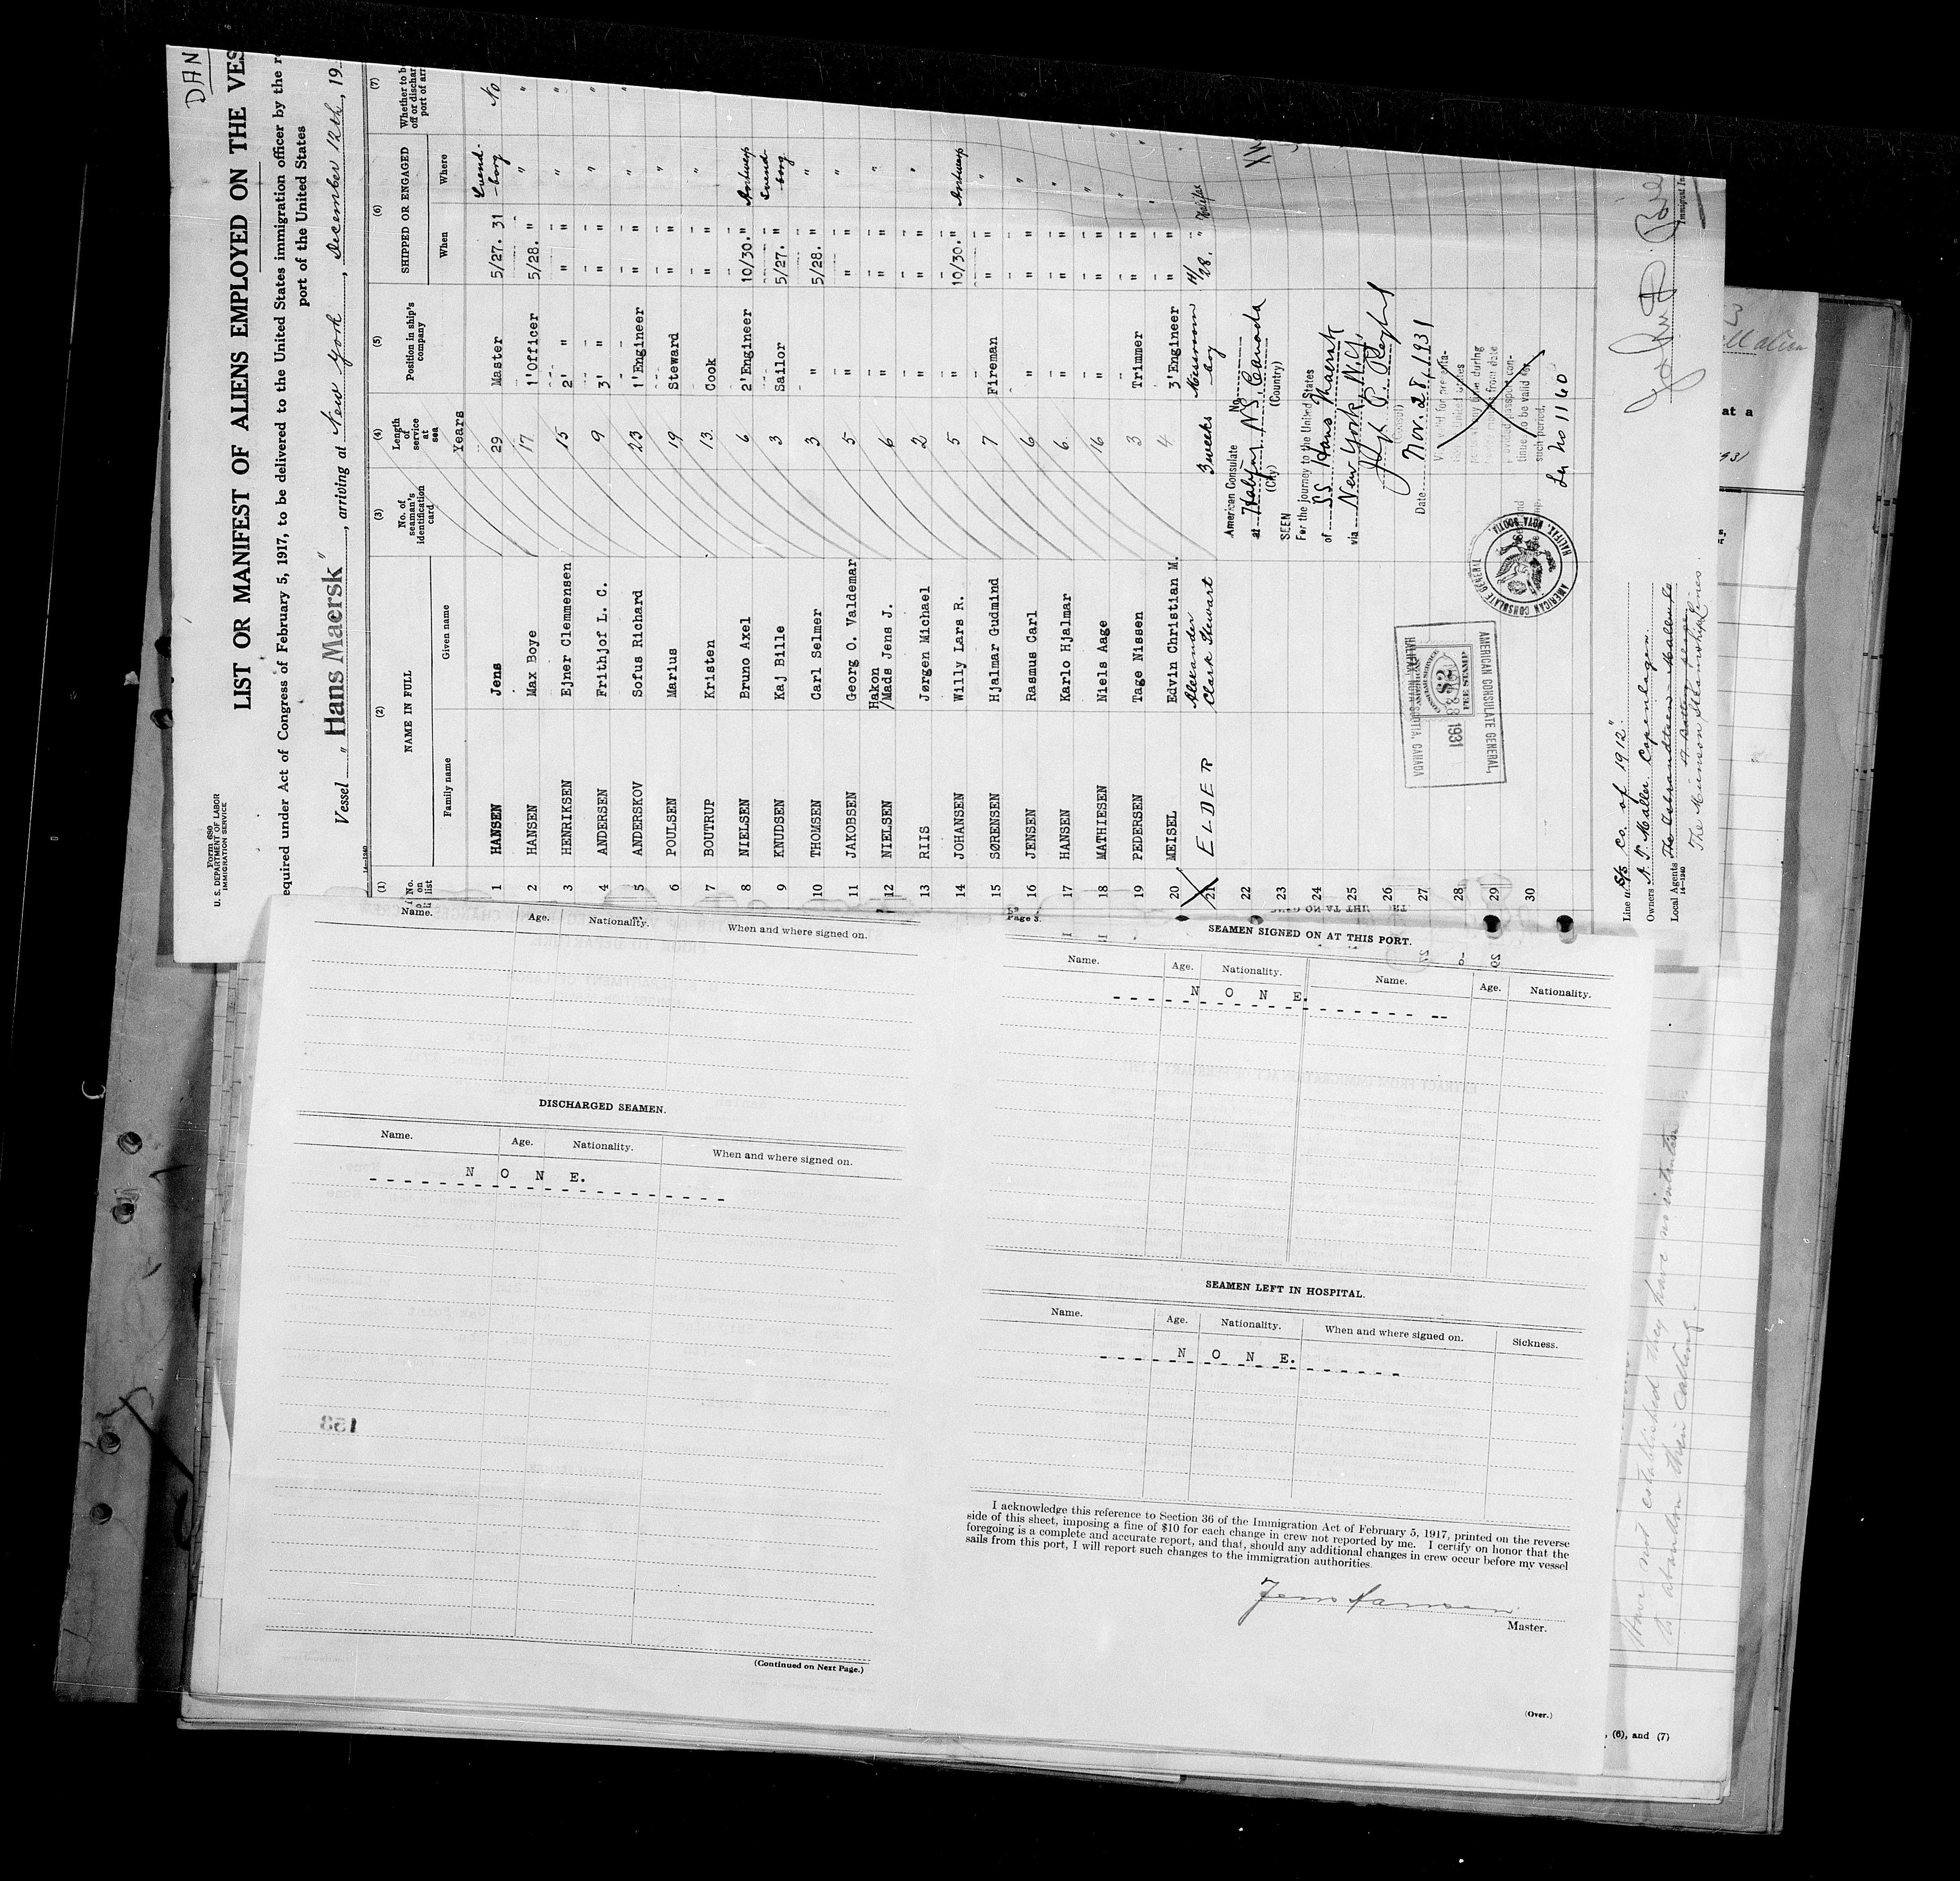 DAN
Form 680
U. S. DEPARTMENT OF LABOR
IMMIGRATION SERVICE
LIST OR MANIFEST OF ALIENS EMPLOYED ON THE VES
equired under Act of Congress of February 5, 1917, to be delivered to the United States immigration officer by the r
port of the United States
Vessel "Hans Maersk", arriving at New York, December 12th, 19
(1) (2) (3) (4) (5) (6) (7)
No. on list
NAME IN FULL
Family name Given name
No. of seaman's identification card
Length of service at sea
Years
Position in ship's company
SHIPPED OR ENGAGED
When Where
Whether to b
off or dischar
port of arr
1 HANSEN Jens 29 Master 5/27. 31 Svend-borg No
2 HANSEN Max Boye 17 1'Officer 5/28. " " "
3 HENRIKSEN Ejner Clemmensen 15 2' " " " " "
4 ANDERSEN Frithjof L. C. 9 3' " " " " "
5 ANDERSKOV Sofus Richard 23 1'Engineer " " " "
6 POULSEN Marius 19 Steward " " "
7 BOUTRUP Kristen 13 Cook " " "
8 NIELSEN Bruno Axel 6 2'Engineer 10/30. " Antwerp
9 KNUDSEN Kaj Bille 3 Sailor 5/27. " Svend-borg
10 THOMSEN Carl Selmer 3 " 5/28. " "
11 JAKOBSEN Georg O. Valdemar 5 " " " "
12 NIELSEN Hakon /Mads Jens J. 6 " " " "
13 RIIS Jørgen Michael 2 " " " "
14 JOHANSEN Willy Lars R. 5 " 10/30. " Antwerp
15 SØRENSEN Hjalmar Gudmind 7 Fireman " " "
16 JENSEN Rasmus Carl 6 " " " "
17 HANSEN Karlo Hjalmar 6 " " " "
18 MATHIESEN Niels Aage 16 " " " "
19 PEDERSSEN Tage Nissen 3 Trimmer " " "
20 MEISEL Edvin Christian M. 4 3'Engineer " " "
21 ELDER Alexander Clark Stewart 3 weeks Messroom boy 11/28. " Halifax
22
23
24
25
26
27
28
29
30
American Consulate No.
at Halifax N.S. Canada
(City) (Country)
SEEN
For the journey to the United States
of SS Hans Maersk
via New York, N.Y.
(Consul)
Date Nov. 28, 1931
such period.
Ser No 1160
AMERICAN CONSULATE GENERAL
HALIFAX, NOVA SCOTIA.
AMERICAN CONSULATE GENERAL,
$2
FEE STAMP
1931
HALIFAX, NOVA SCOTIA, CANADA
Line S/S Co. of 1912".
Owners A. P. Møller. Copenhagen.
Local Agents
14—1240
The Munson Steamship Lines.
Immigrant In
at a
Have not established they have no intention
to abandon their calling.
, (6), and (7)
Name. Age. Nationality. When and where signed on.
DISCHARGED SEAMEN.
Name. Age. Nationality. When and where signed on.
N O N E.
(Continued on Next Page.)
Page 3.
SEAMEN SIGNED ON AT THIS PORT.
Name. Age. Nationality. Name. Age. Nationality.
N O N E.
SEAMEN LEFT IN HOSPITAL.
Name. Age. Nationality. When and where signed on. Sickness.
N O N E.
I acknowledge this reference to Section 36 of the Immigration Act of February 5, 1917, printed on the reverse
side of this sheet, imposing a fine of $10 for each change in crew not reported by me. I certify on honor that the
foregoing is a complete and accurate report, and that, should any additional changes in crew occur before my vessel
sails from this port, I will report such changes to the immigration authorities.
Jens Hansen
Master.
(Over.)